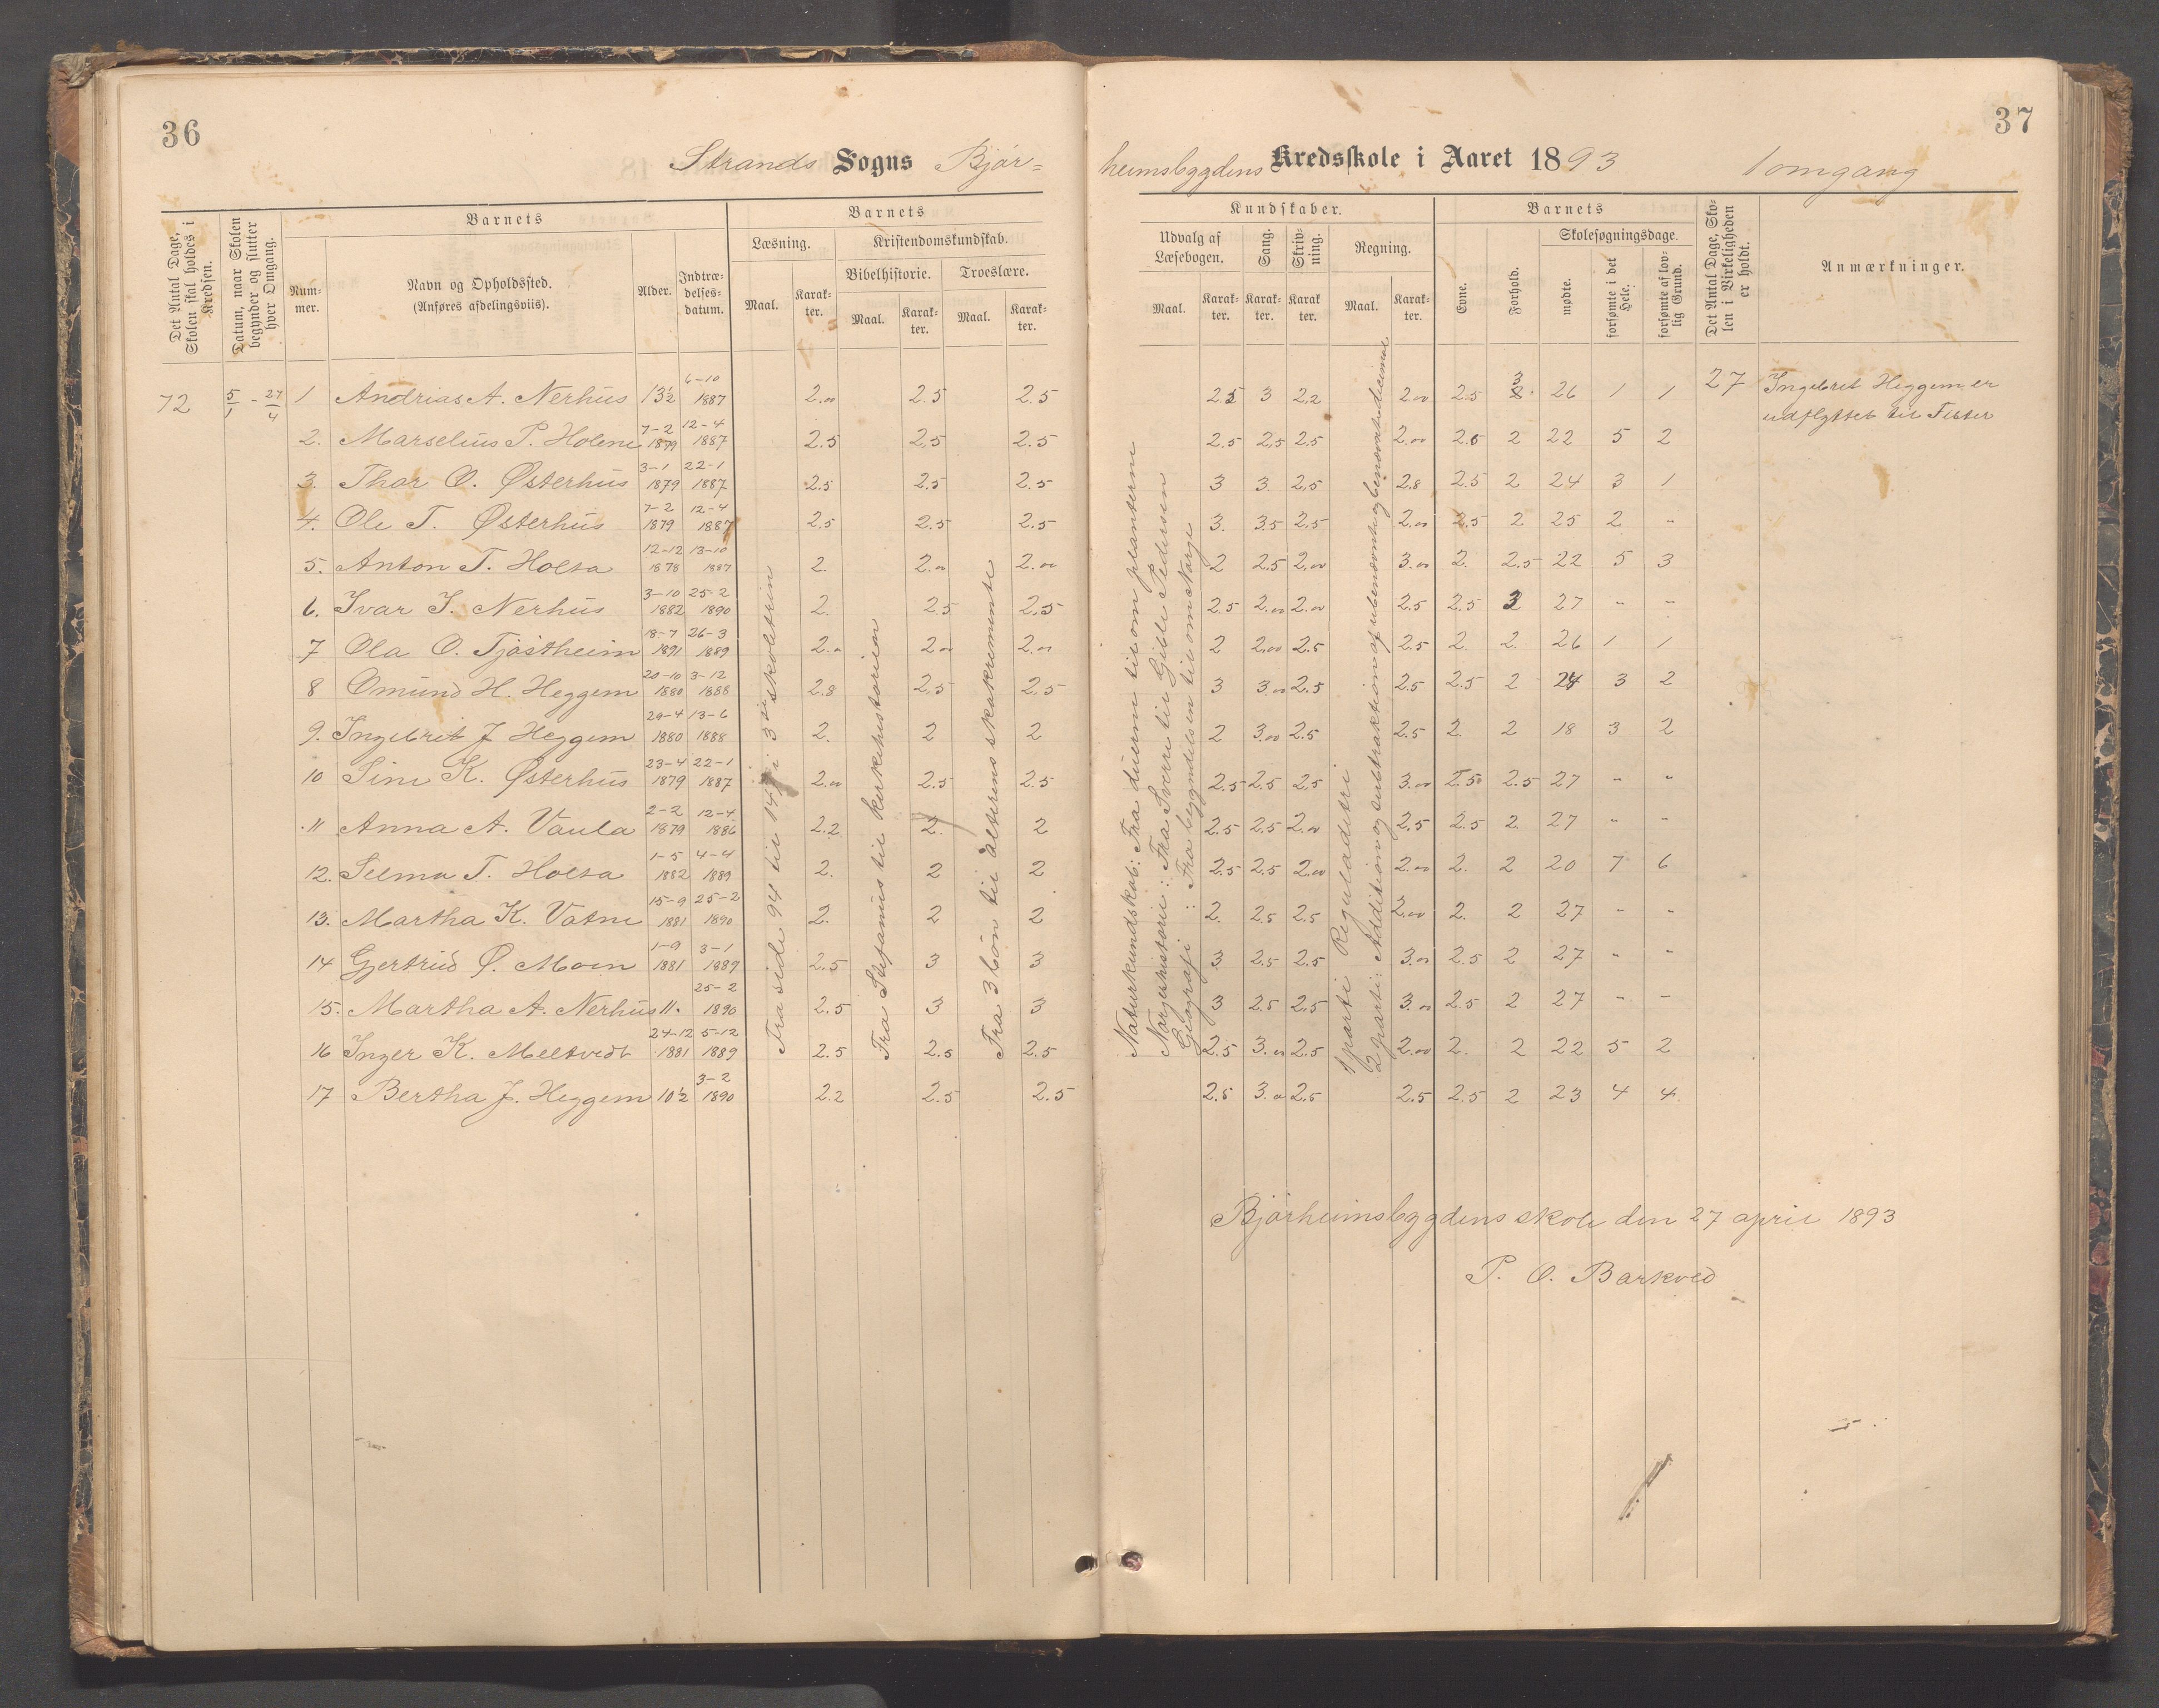 36
37
Strands Sogns Bjór=
heimsbygdens Kredsskole i Aaret 1893 1 omgang
Det Antal Dage, Skolen skal holdes i Kredsen.
Datum, naar Skolen begynder og slutter hver Omgang.
Barnets
Num-mer.
Navn og Opholdssted.
(Anføres afdelingsviis).
Alder.
Indtræ-delses-datum.
Barnets
Læsning.
Kristendomskundskab.
Bibelhistorie.
Troeslære.
Maal. Karak-ter. Maal. Karak-ter. Maal. Karak-ter.
Kundskaber.
Udvalg af Læsebogen.
Sang.
Skriv-ning.
Regning.
Maal. Karak-ter. Karak-ter. Karak-ter. Maal. Karak-ter.
Barnets
Evne.
Forhold.
Skolesøgningsdage.
mødte.
forsømte i det Hele.
forsømte af lov-lig Grund.
Det Antal Dage, Sko-len i Virkeligheden er holdt.
Anmærkninger.
72 5/1 - 27/4 1 Andrias A. Nerhus 13½ 6-10 1887 2.00 2.5 2.5 2.5 3 2.2 2.00 2.5 3 26 1 1 27 Ingebret Heggem er
udflyttet til Fister
2. Marselius P. Holene 7-2 1879 12-4 1887 2.5 2.5 2.5 2.5 2.5 2.5 2.00 2.5 2 22 5 2
3. Thor O. Østerhus 3-1 1879 22-1 1887 2.5 2.5 2.5 3 3. 2.5 2.8 2.5 2 24 3 1
4. Ole T. Østerhus 7-2 1879 12-4 1887 2.5 2.5 2.5 3. 3.5 2.5 2.00 2.5 2 25 2 -
5. Anton T. Holta 12-12 1878 13-10 1887 2. 2.00 2.00 2 2.5 2.00 3.00 2. 2.5 22 5 3
6. Ivar I. Nerhus 3-10 1882 25-2 1890 2. 2.5 2.5 2.5 2.00 2.00 2.5 2.5 3 27 - -
7 Ola O. Tjøstheim 18-7 1891 26-3 1889 2.00 2.00 2.00 2 2.00 2.5 2.5 2. 2. 26 1 1
8 Omund H. Heggem 20-10 1880 3-12 1888 2.8 2.5 2.5 3 3.00 2.5 2.5 2.5 2 24 3 2
9. Ingebrit J Heggem 29-4 1880 13-6 1888 2. 2 2 2 3.00 2.5 2.5 2. 2 18 3 2
10 Sine K. Østerhus 23-4 1879 22-1 1887 2.00 2.5 2.5 2.5 2.5 2.5 3.00 2.50 2.5 27 - -
11 Anna A. Vaula 2-2 1879 12-4 1886 2.2 2. 2 2.5 2.5 2.00 2.5 2.5 2. 27 - -
12. Selma T. Holta 1-5 1882 4-4 1889 2. 2 2 2.5 2.5 2.00 2.00 2. 2 20 7 6
13. Martha K. Vatne 15-9 1881 25-2 1890 2. 2 2 2. 2.5 2.5 2.00 2. 2 27 - -
14 Gjertrud Ø. Moen 1-9 1881 3-1 1889 2.5 3 3 3 2.5 2.5 3.00 2.5 2 27 - -
15. Martha A. Nerhus 11. 25-2 1890 2.5 3 3 3 2.5 2.5 3.00 2.5 2 27 - -
16 Inger K. Meltvedt 24-12 1881 5-12 1889 2.5 2.5 2.5 2.5 3.00 2.5 2.00 2. 2 22 5 2
17 Bertha J. Heggem 10½ 3-2 1890 2.2 2.5 2.5 2.5 3.00 2.5 2.5 2.5 2 23 4 4
Fra side 94 til 147 i 3 die skoletrin
Fra Stefanus til kirkehistorien
Fra 3 bön til alterens sakremente
Naturkundskab: Fra duerne til om planterne
Norgeshistorie: Fra Sverre til Gjble Pedersen
Geografi: Fra begyndelsen til om Norge
1 parti Reguladetri
2 parti: Addition og subtraktion af ubenævnte og benævnte decimal
Bjórheimsbygdens skole den 27 april 1893
P. O. Barkved